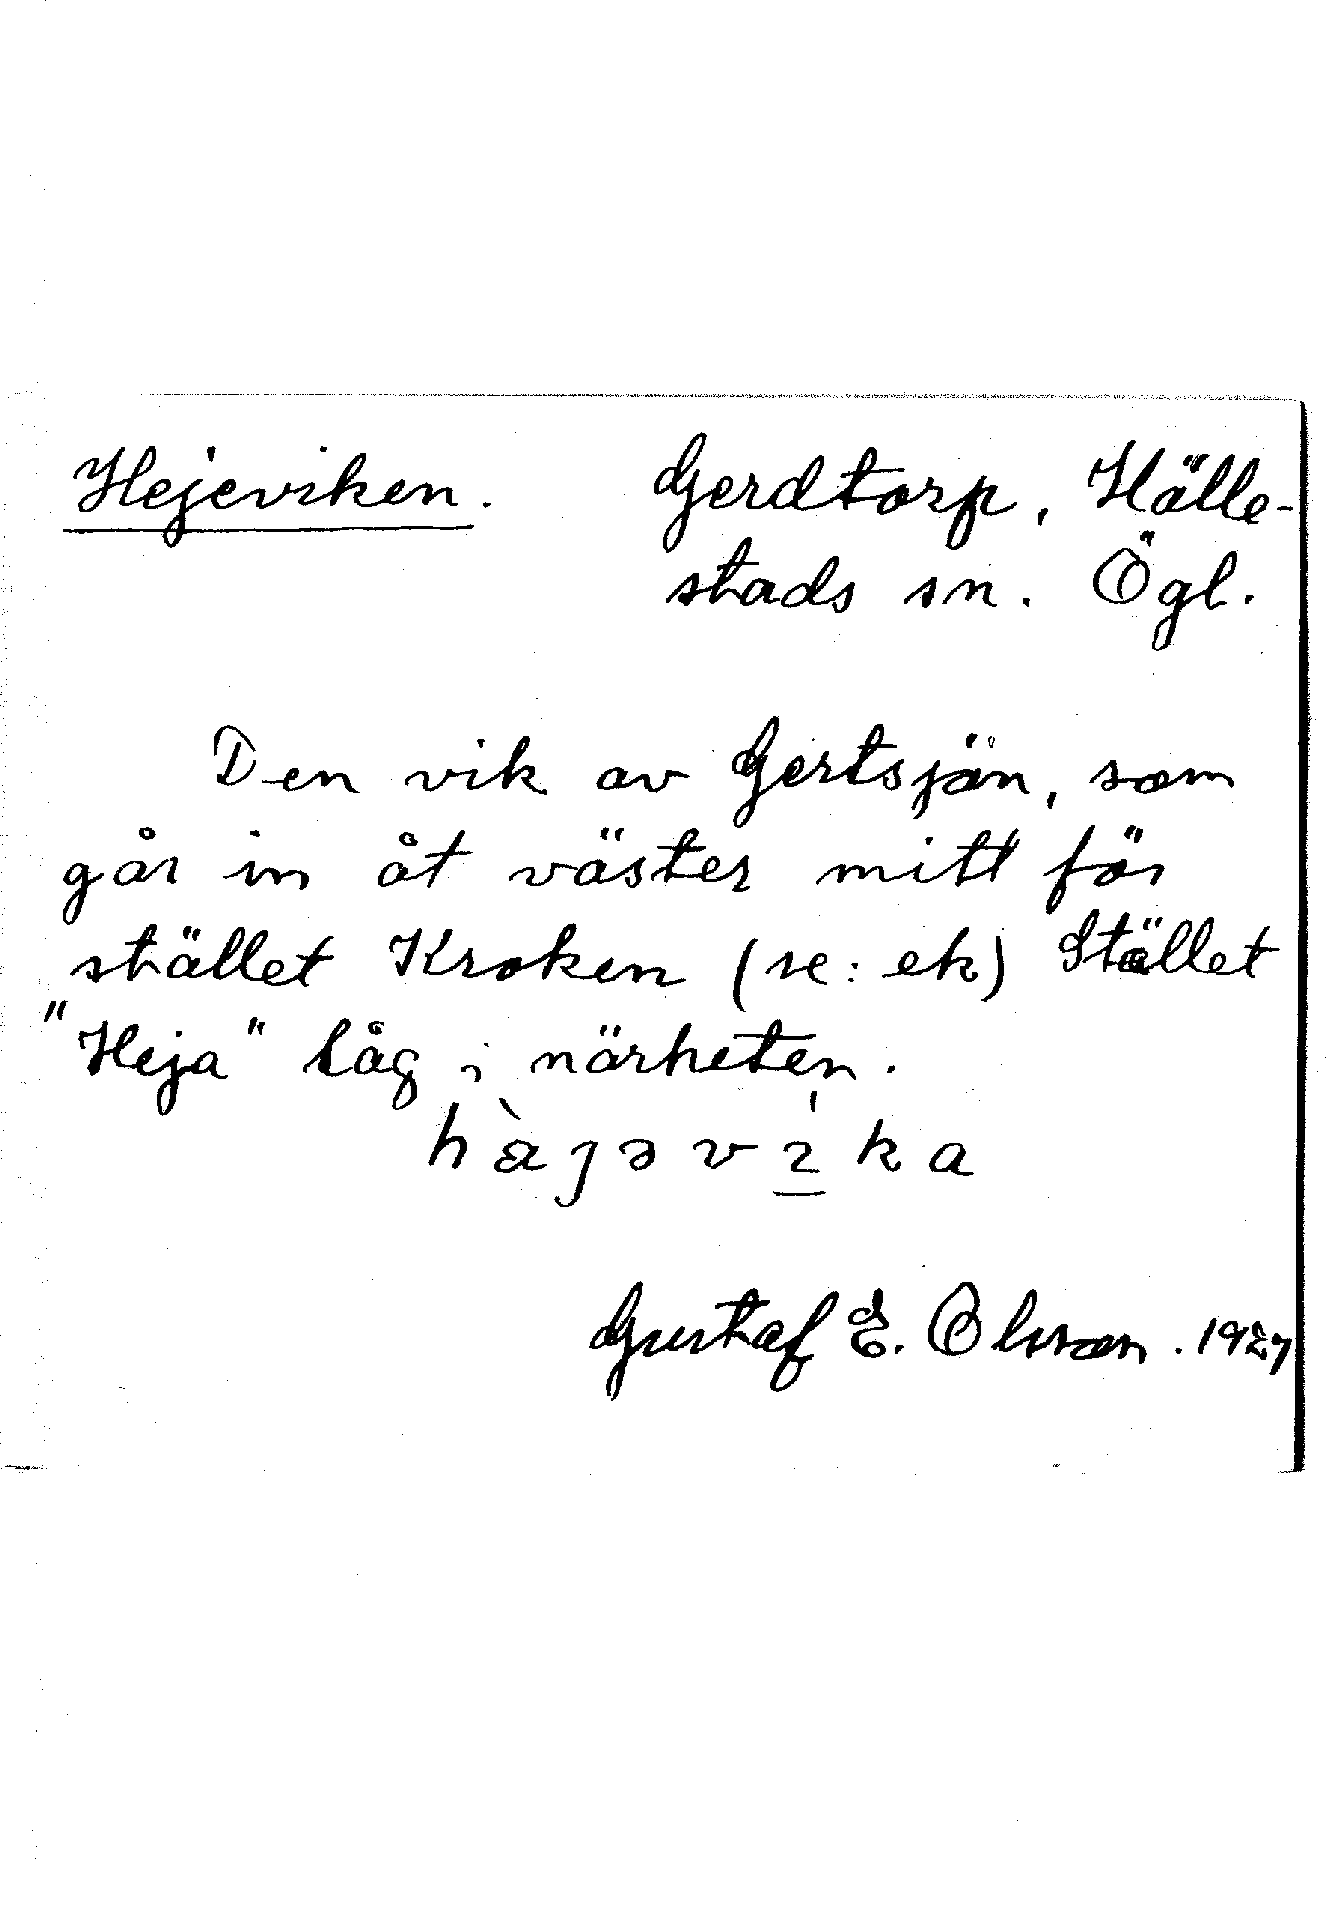 Hejeviken. Gerdtorp, Hälle-
stads sn. Ögl.
Den vik av Gertsjön, som
går in åt väster mitt för
stället Kroken (se: ek) Stället
"Heja" låg i närheten.
hàjəví̲ka
Gustaf E. Olsson. 1927